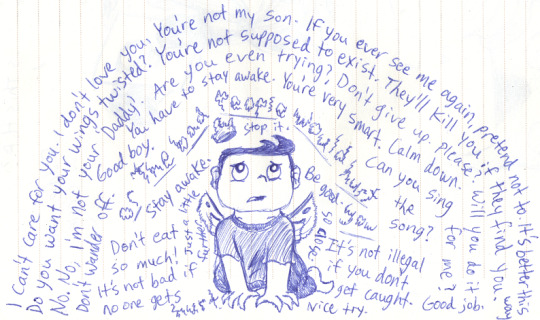 I can't care for you. I don't love you. You're not my son. If you ever see me again, pretend not to. It's better this way
Do you want your wings twisted? You're not supposed to exist. They'll kill you if they find you.
No, No, I'm not your 'Daddy'. Are you even trying? Don't give up, please? Will you do it for me? Good job.
Don't wander off Good boy. You have to stay awake. You're very smart. Calm down. Can you sing the song?
Stay awake.
stop it.
Be good.
so close.
Just a little farther
Don't eat so much!
It's not bad if no one gets
It's not illegal if you don't get caught.
Nice try.